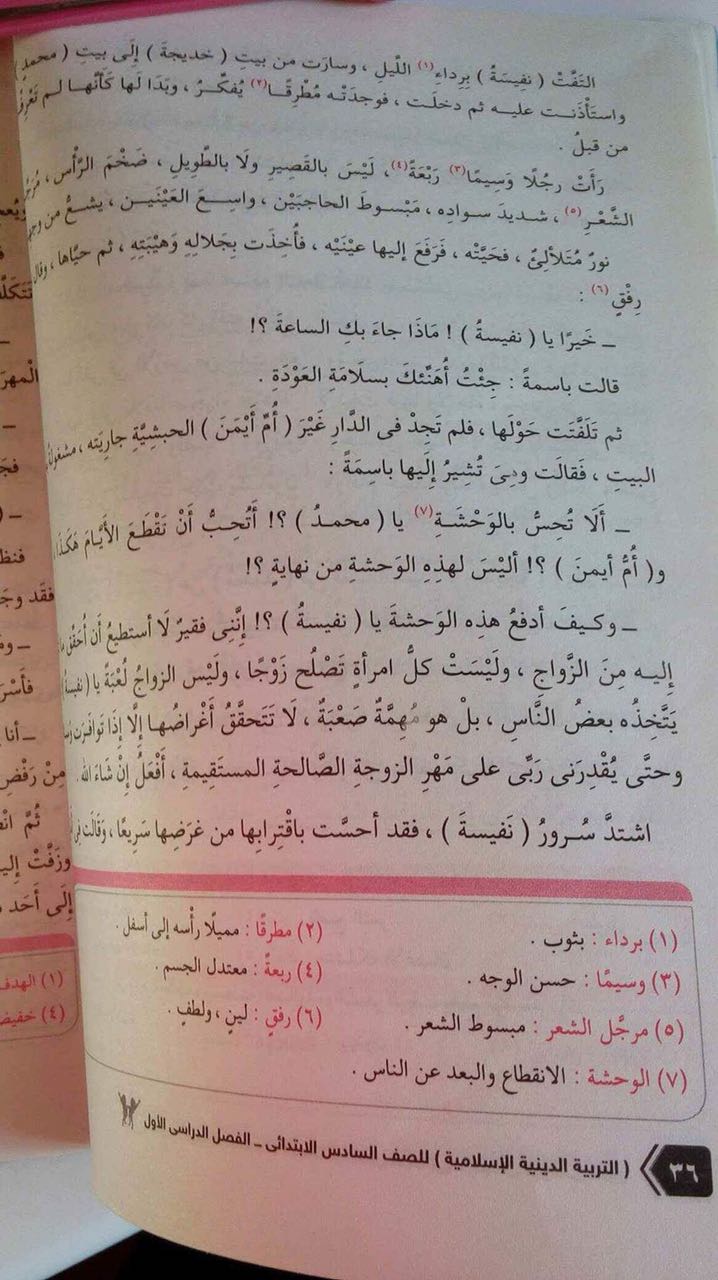 التَفَّتْ ( نَفِيسَةُ ) بِرِداءِ(١) اللَّيلِ ، وسارَت من بيتِ ( خديجةَ ) إلَى بيتِ ( محمدٍ )
واستَأْذَنت عليه ثم دخلَت ، فوجدَتْه مُطْرِقًا(٢) يُفكِّرُ ، وبَدَا لَها كَأَنَّهـا لـم تَعْرِفْ
من قبلُ .
رَأَتْ رجُلًا وَسِيمًا(٣) رَبْعَةً(٤)، لَيْسَ بالقَصيرِ ولَا بالطَّوِيلِ ، ضَخْمَ الرَّأْس ،
الشَّعْرِ(٥) ، شديدَ سوادِه ، مَبْسوطَ الحاجبَيْن ، واسِـعَ العَيْنَـين ، يشعُّ من
نورٌ مُتَلألِئٌ ، فحَيَّتْه ، فَرَفَعَ إليها عينَيْه ، فأُخِذَت بِجَلالِهِ وَهَيْبَتِهِ ، ثم حيَّاها ، وقال
رِفْقٍ(٦) :
ـ خَيرًا يا ( نفيسةُ ) ! مَاذَا جاءَ بكِ الساعةَ ؟!
قالت باسمةً : جِئْتُ أُهَنِّئكَ بسلَامَةِ العَوْدَةِ .
ثم تَلَفَّتَت حَوْلَها ، فلم تَجِدْ فى الدَّارِ غَيْرَ ( أُمِّ أَيْمَنَ ) الحبشِيَّةِ جاريَتِه ، مشغولةً
البيتِ ، فَقالَت وهِىَ تُشِيرُ إلَيها باسِمَةً :
ـ أَلَا تُحِسُّ بالوَحْشَـةِ(٧) يا ( محمـدُ ) ؟! أَتُحِبُّ أَنْ تَقْطَعَ الأَيَّامَ هَكَذَا
و( أُمُّ أيمنَ ) ؟! أليْسَ لهذِهِ الوَحشةِ من نهايةٍ ؟!
ـ وكـيفَ أدفعُ هذه الوَحشةَ يا ( نفيسةُ ) ؟! إنَّنِى فقيرٌ لَا أستطيعُ أَن أُحَقِّقَ ما
إليـه مِنَ الزَّواجِ ، ولَيْسَتْ كلُّ امرأةٍ تَصْلُح زَوْجًا ، ولَيْس الزواجُ لُعْبَةً يا ( نفيسةُ )
يَتَّخِذُه بعضُ النَّاسِ ، بلْ هو مُهِمَّةٌ صَعْبَةٌ ، لَا تَتَحقَّقُ أَغْراضُـها إلَّا إذَا تَوافَرَت
وحتَّى يُقْدِرَنى رَبِّى على مَهْرِ الزوجةِ الصَّالحةِ المستَقِيمةِ ، أَفْعَلُ إنْ شَاءَ الله .
اشتدَّ سُـرورُ ( نَفيسةَ ) ، فقد أحسَّت باقْتِرابِها من غرَضِها سَرِيعًا ، وَقَالَت فى
(١) برداء : بثوب .
(٢) مطرقًا : مميلًا رأسه إلى أسفل .
(٣) وسيمًا : حسن الوجه .
(٤) ربعةً : معتدل الجسم .
(٥) مرجَّل الشعر : مبسوط الشعر .
(٦) رفقٍ : لينٍ ، ولطفٍ .
(٧) الوحشة : الانقطاع والبعد عن الناس .
٣٦
( التربية الدينية الإسلامية ) للصف السادس الابتدائى ـ الفصل الدراسى الأول
المهرَ
فقد وجَ
ـ أنا
مِنْ رَفْضِ
ثُمَّ
وزَفَّتْ إليـ
إلَى أَحَد
(١) الهدف
(٤) خفيض